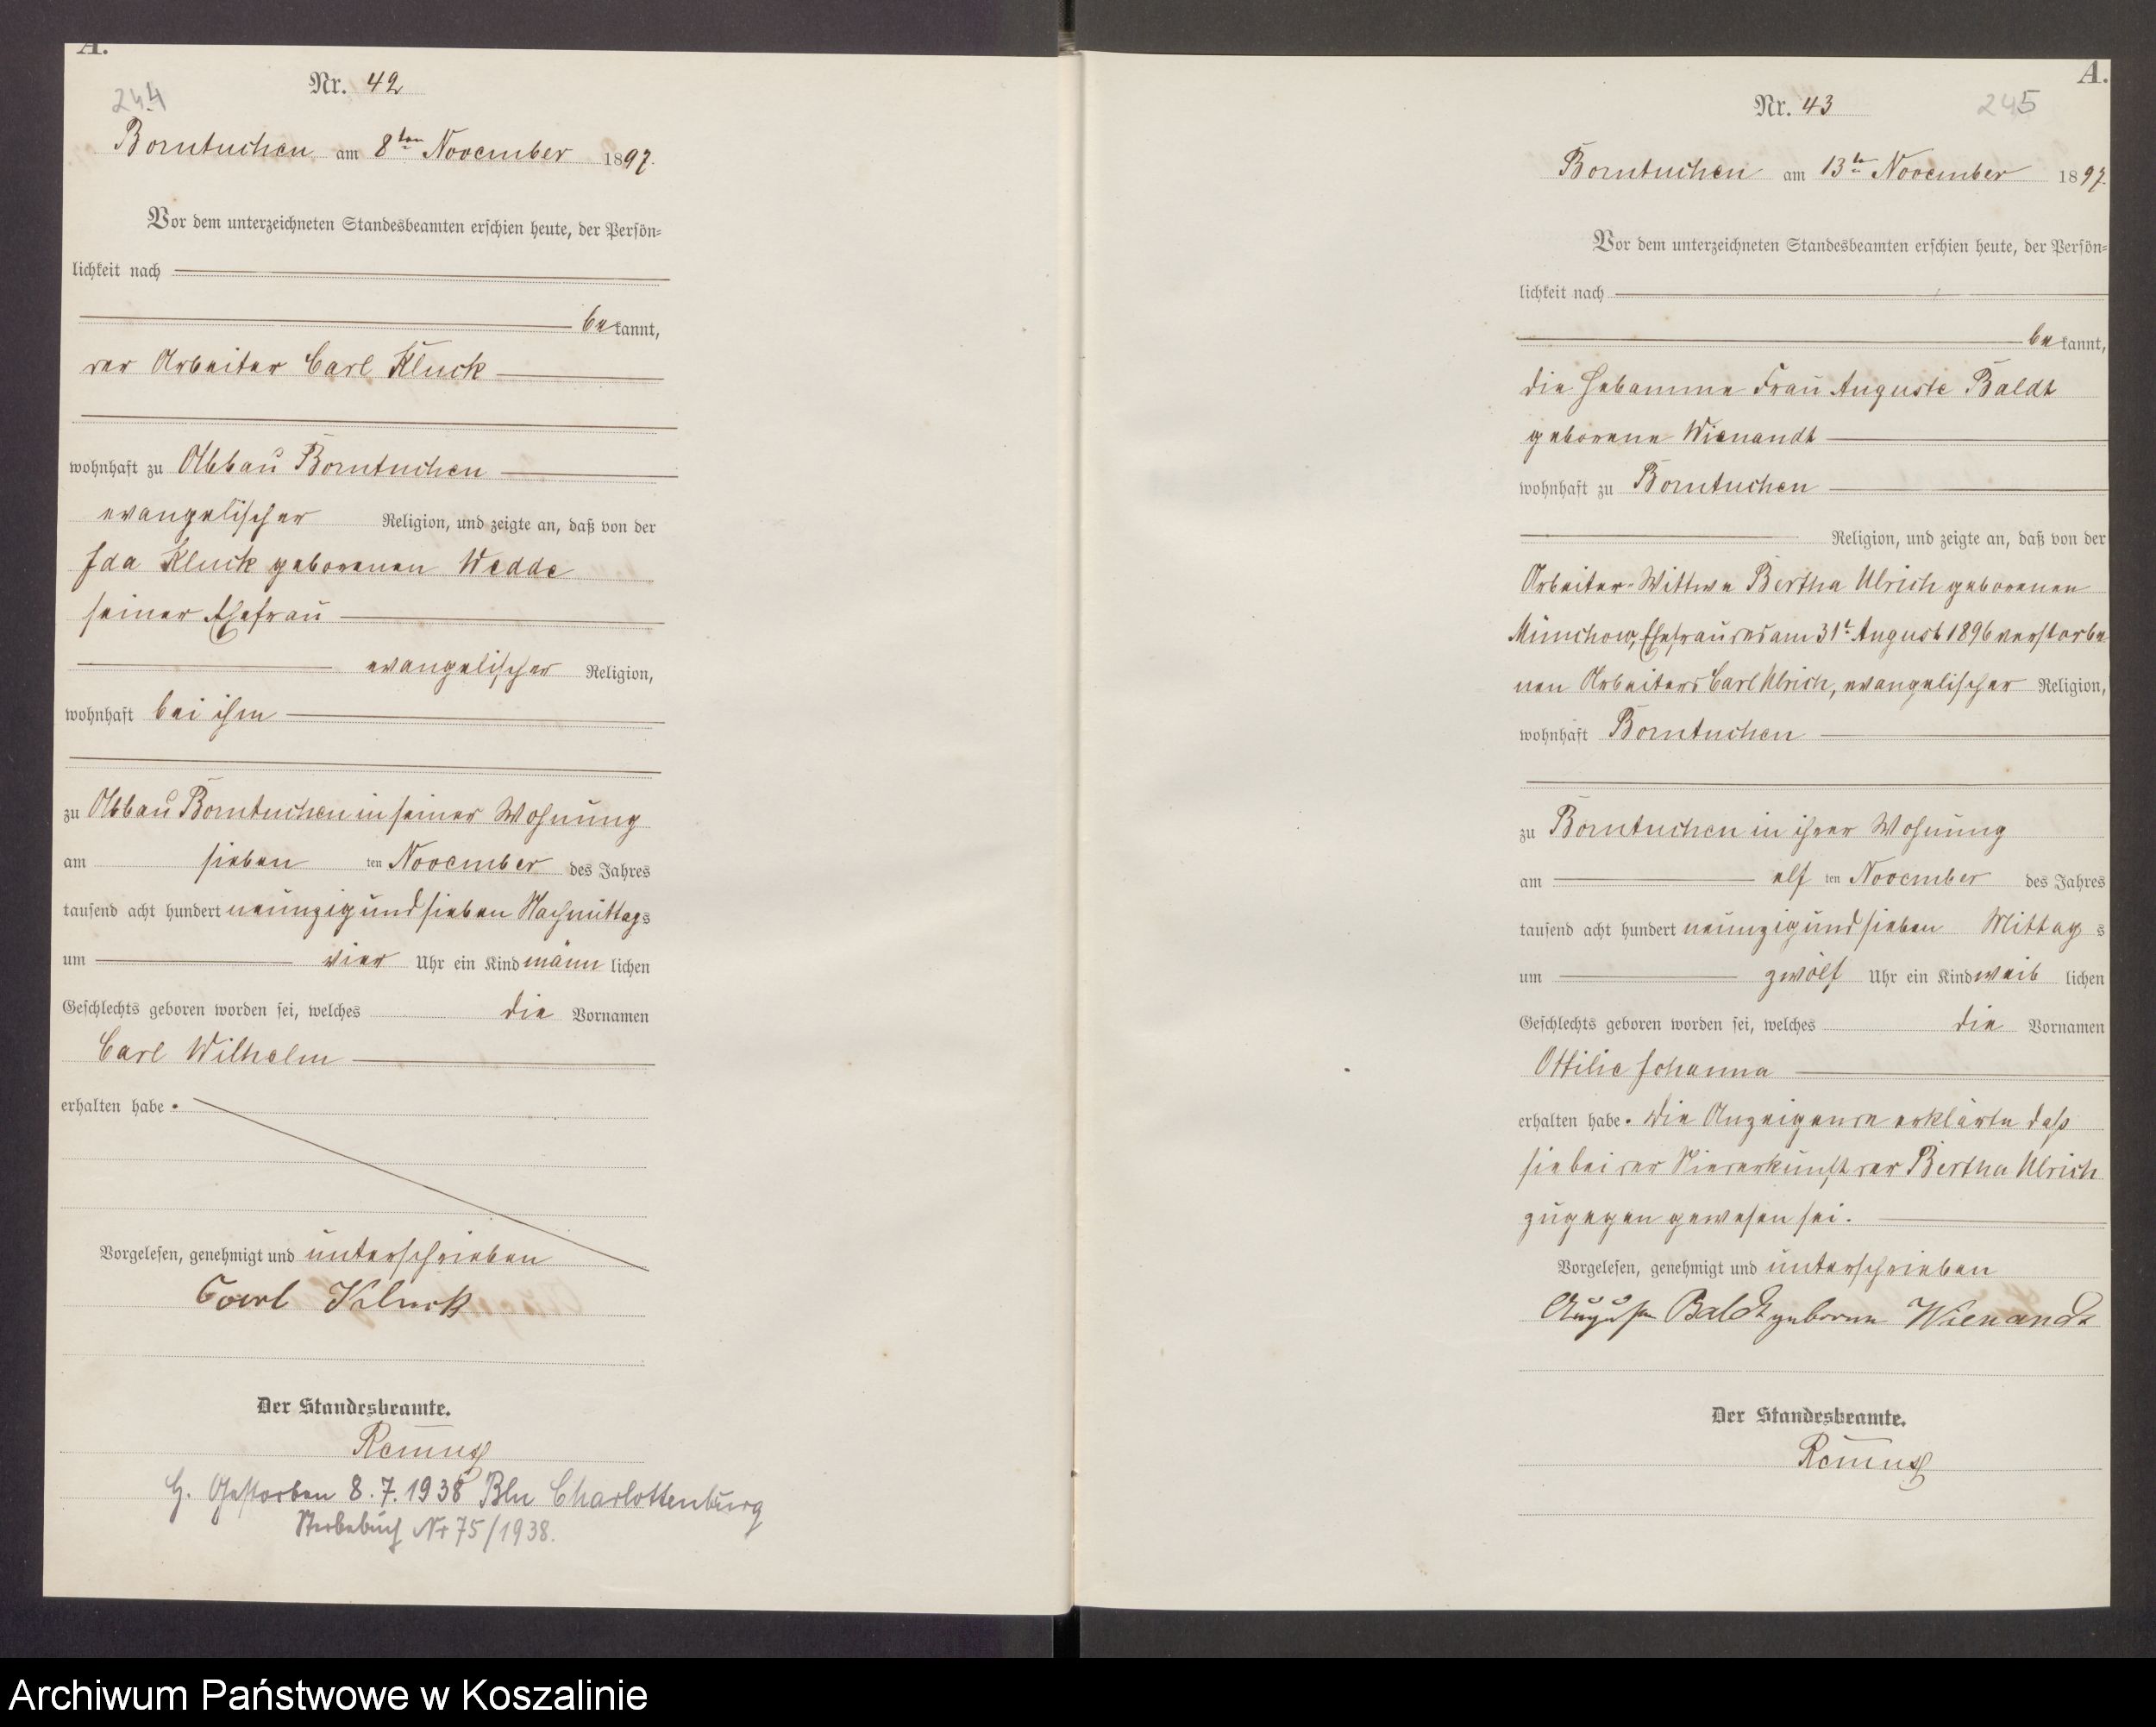 A.
244
Nr. 42
Borntuchen am 8ten November 1897.
Vor dem unterzeichneten Standesbeamten erschien heute, der Persön-
lichkeit nach
bekannt,
der Arbeiter Carl Kluck
wohnhaft zu Abbau Borntuchen
evangelischer Religion, und zeigte an, daß von der
Ida Kluck geborenen Wedde
seiner Ehefrau
evangelischer Religion,
wohnhaft bei ihm
zu Abbau Borntuchen in seiner Wohnung
am sieben ten November des Jahres
tausend acht hundert neunzig und sieben Nachmittags
um vier Uhr ein Kind männlichen
Geschlechts geboren worden sei, welches die Vornamen
Carl Wilhelm
erhalten habe.
Vorgelesen, genehmigt und unterschrieben
Carl Kluck
Der Standesbeamte.
Ramus
H. Gestorben 8.7.1938 Bln Charlottenburg
Sterbebuch Nr 75/1938.
A.
245
Nr. 43
Borntuchen am 13te November 1897.
Vor dem unterzeichneten Standesbeamten erschien heute, der Persön-
lichkeit nach
bekannt,
die Hebamme Frau Auguste Baldt
geborene Wienandt
wohnhaft zu Borntuchen
Religion, und zeigte an, daß von der
Arbeiter-Wittwe Bertha Ulrich geborenen
Münchow, Ehefrau des am 31t August 1896 verstorbe-
nen Arbeiters Carl Ulrich, evangelischer Religion,
wohnhaft Borntuchen
zu Borntuchen in ihrer Wohnung
am elf ten November des Jahres
tausend acht hundert neunzig und sieben Mittags
um zwölf Uhr ein Kind weiblichen
Geschlechts geboren worden sei, welches die Vornamen
Ottilie Johanna
erhalten habe. Die Anzeigende erklärte daß
sie bei der Niederkunft der Bertha Ulrich
zugegen gewesen sei.
Vorgelesen, genehmigt und unterschrieben
Auguste Baldt geborene Wienandt
Der Standesbeamte.
Ramus
Archiwum Państwowe w Koszalinie